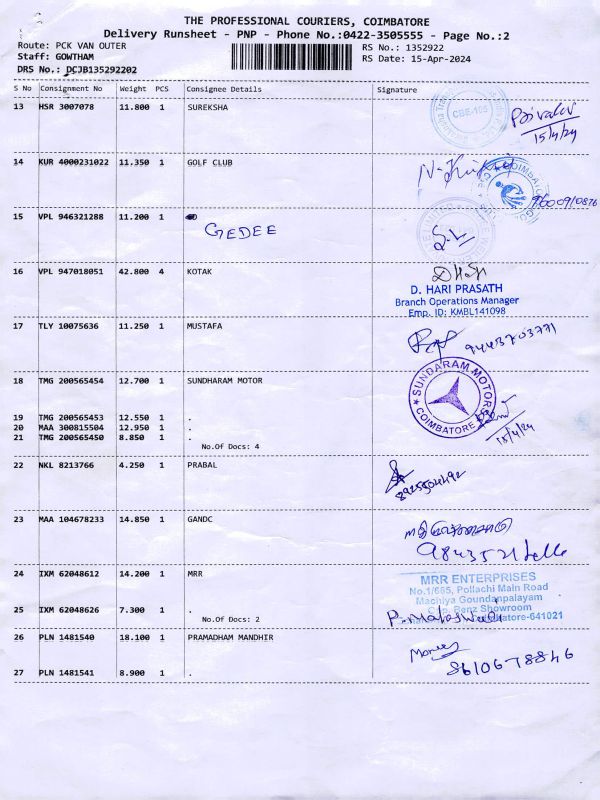 THE PROFESSIONAL COURIERS, COIMBATORE
Delivery Runsheet - PNP - Phone No.:0422-3505555 - Page No.:2
Route: PCK VAN OUTER
RS No.: 1352922
Staff: GOWTHAM
RS Date: 15-Apr-2024
DRS No.: DCJB135292202
S No Consignment No Weight PCS Consignee Details Signature
13 HSR 3007078 11.800 1 SUREKSHA
CBE-105
15/4/24
14 KUR 4000231022 11.350 1 GOLF CLUB
9600910876
15 VPL 946321288 11.200 1
GEDEE
S.L
16 VPL 947018051 42.800 4 KOTAK
D. HARI PRASATH
Branch Operations Manager
Emp. ID: KMBL141098
17 TLY 10075636 11.250 1 MUSTAFA
9443703771
18 TMG 200565454 12.700 1 SUNDHARAM MOTOR
SUNDARAM MOTORS
COIMBATORE
19 TMG 200565453 12.550 1 .
20 MAA 300815504 12.950 1 .
21 TMG 200565450 8.850 1 .
15/4/24
No.Of Docs: 4
22 NKL 8213766 4.250 1 PRABAL
23 MAA 104678233 14.850 1 GANDC
24 IXM 62048612 14.200 1 MRR
MRR ENTERPRISES
No.1/665, Pollachi Main Road
Machiya Goundanpalayam
Opp. Benz Showroom
25 IXM 62048626 7.300 1 .
No.Of Docs: 2
26 PLN 1481540 18.100 1 PRAMADHAM MANDHIR
8610678846
27 PLN 1481541 8.900 1 .